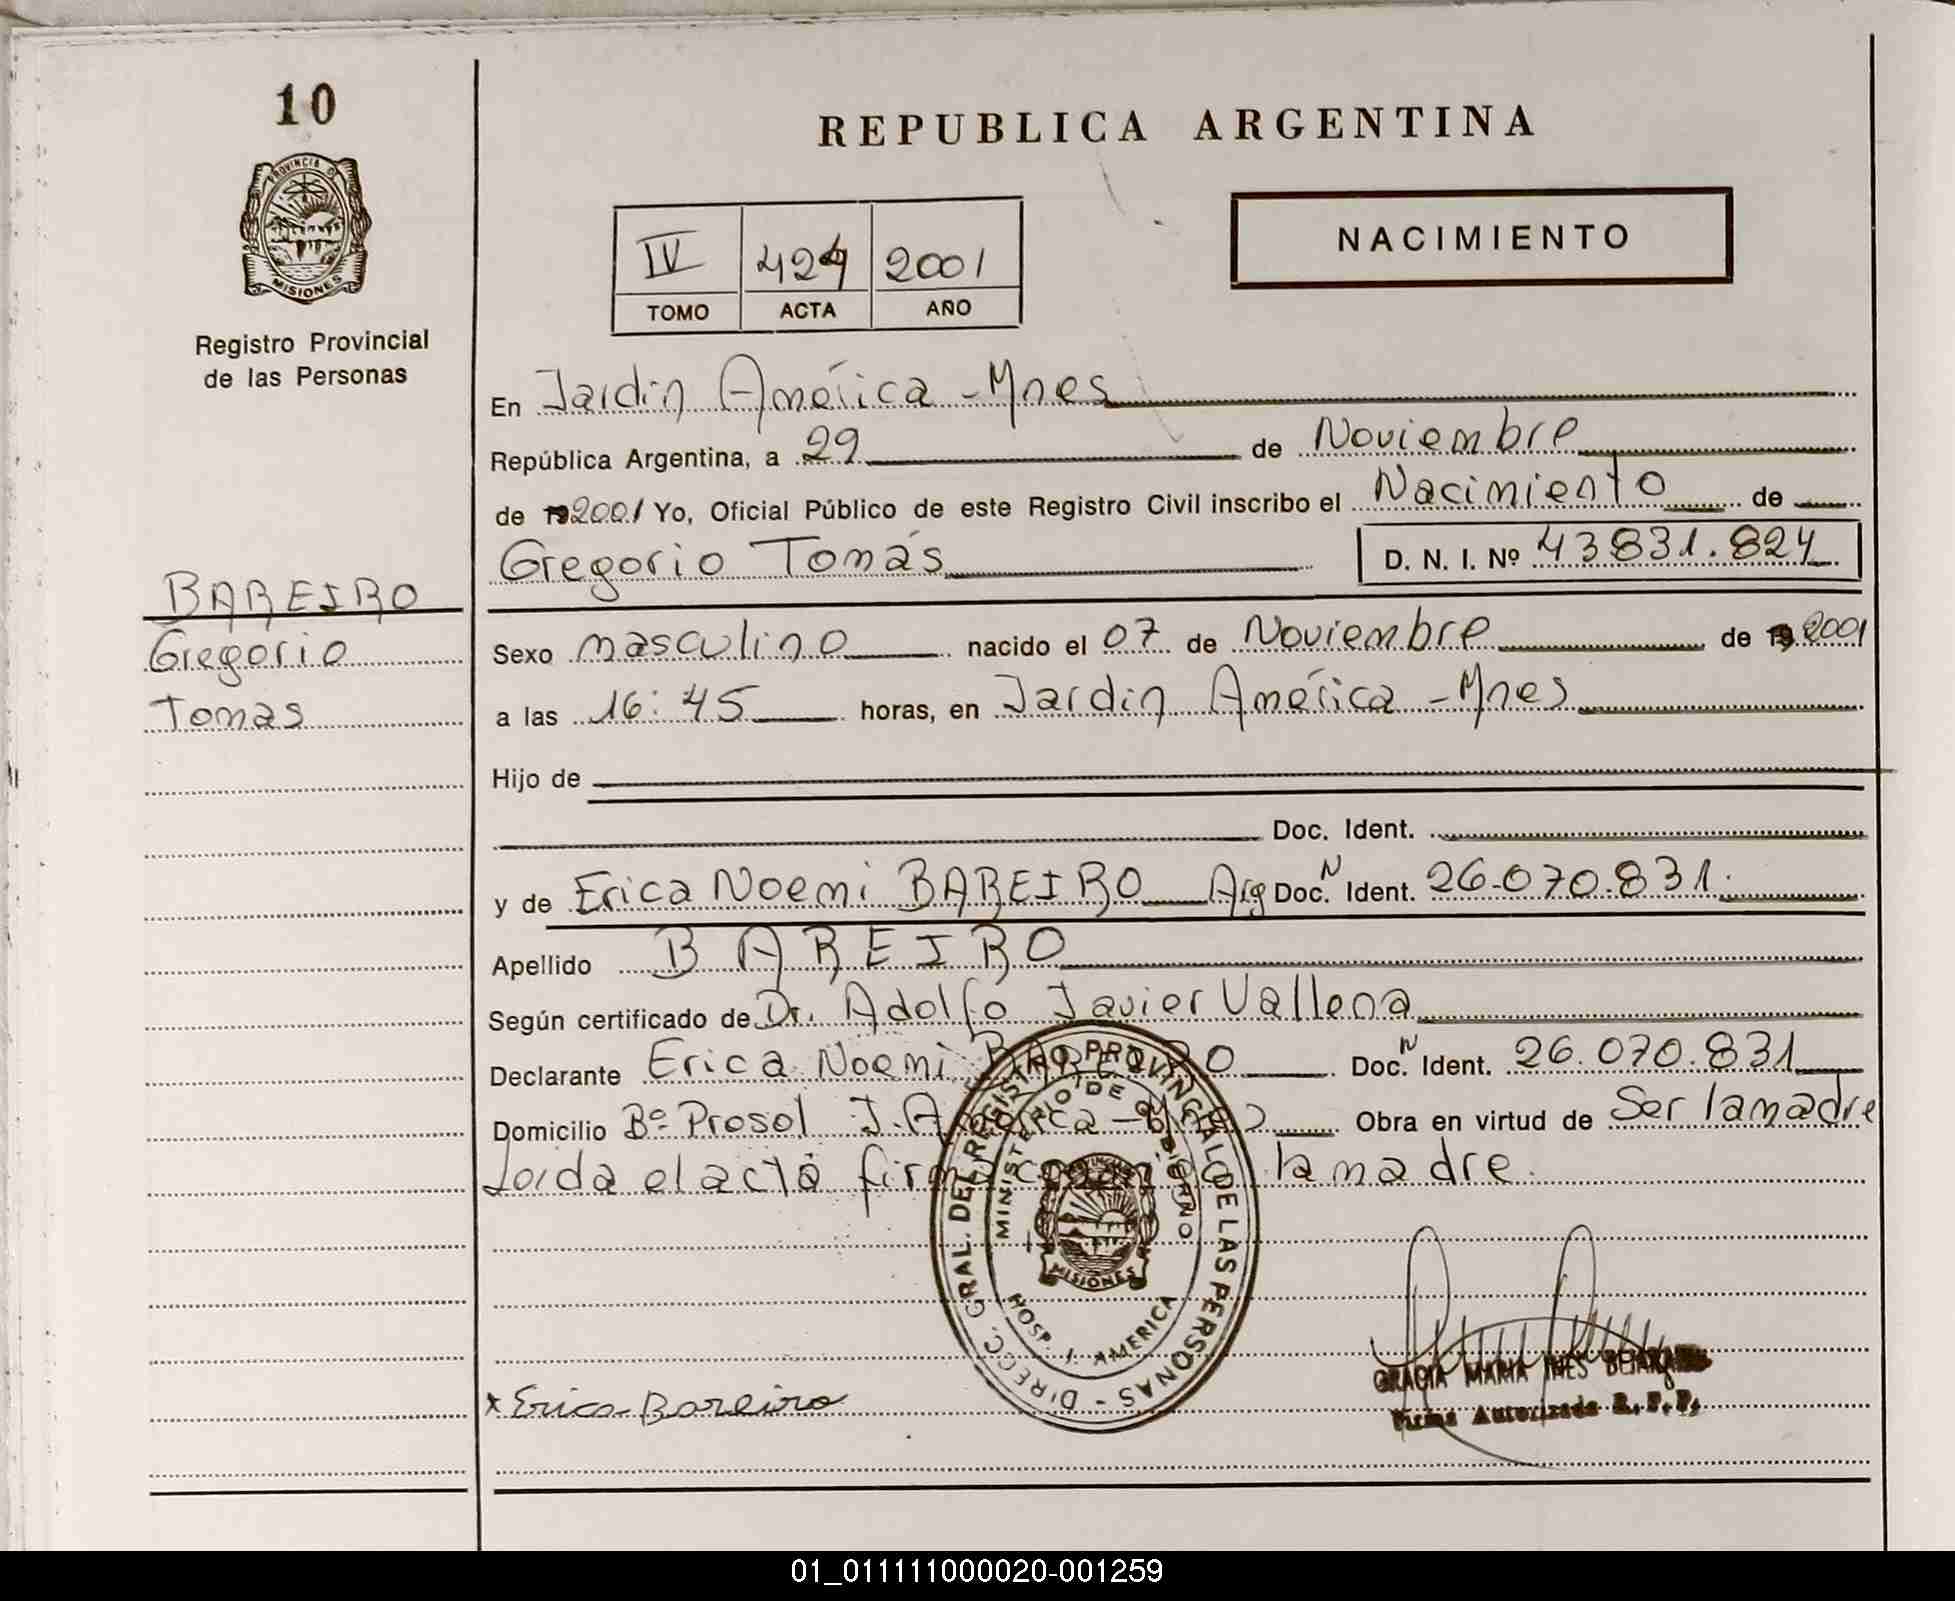 10
PROVINCIA DE
MISIONES
Registro Provincial
de las Personas
BAREIRO
Gregorio
Tomas
REPUBLICA ARGENTINA
NACIMIENTO
IV 424 2001
TOMO ACTA AÑO
En Jardin América - Mnes
República Argentina, a 29 de Noviembre
de 192001 Yo, Oficial Público de este Registro Civil inscribo el Nacimiento de
Gregorio Tomás D. N. I. Nº 43831.824
Sexo masculino nacido el 07 de Noviembre de 19 2001
a las 16:45 horas, en Jardin América - Mnes
Hijo de
Doc. Ident.
y de Erica Noemi BAREIRO Arg Doc. N Ident. 26.070.831.
Apellido BAREIRO
Según certificado de Dr. Adolfo Javier Vallena
Declarante Erica Noemi BAREIRO Doc. N Ident. 26.070.831
Domicilio Bº Prosol J. América - Mnes Obra en virtud de Ser la madre
Loida el acta firma la madre.
DIRECC. GRAL. DEL REGISTRO PROVINCIAL DE LAS PERSONAS -
MINISTERIO DE GOBIERNO
MISIONES
HOSP. J. AMERICA
x Erica Bareiro
GRACIA MARIA INES
Firma Autorizada R.P.P.
01_011111000020-001259